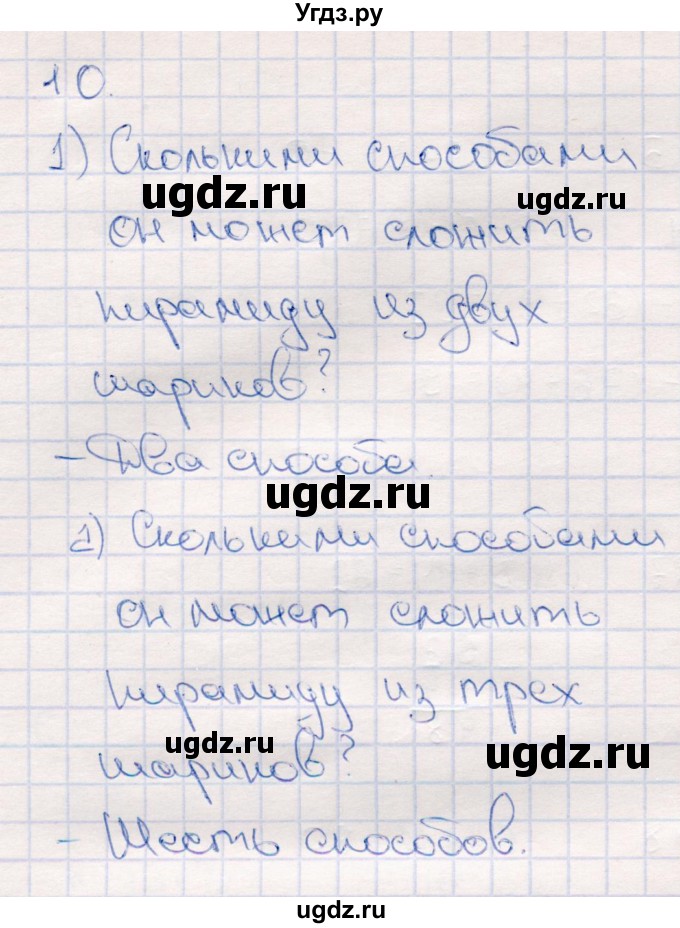 Угдз.ру
10.
1) Сколькими способами
ugdz.ru
ugdz.ru
он может сложить
пирамиду из двух
шариков?
- Два способа.
ugdz.ru
2) Сколькими способами
он может сложить
пирамиду из трех
ugdz.ru
ugdz.ru
шариков?
- Шесть способов.
ugdz.ru